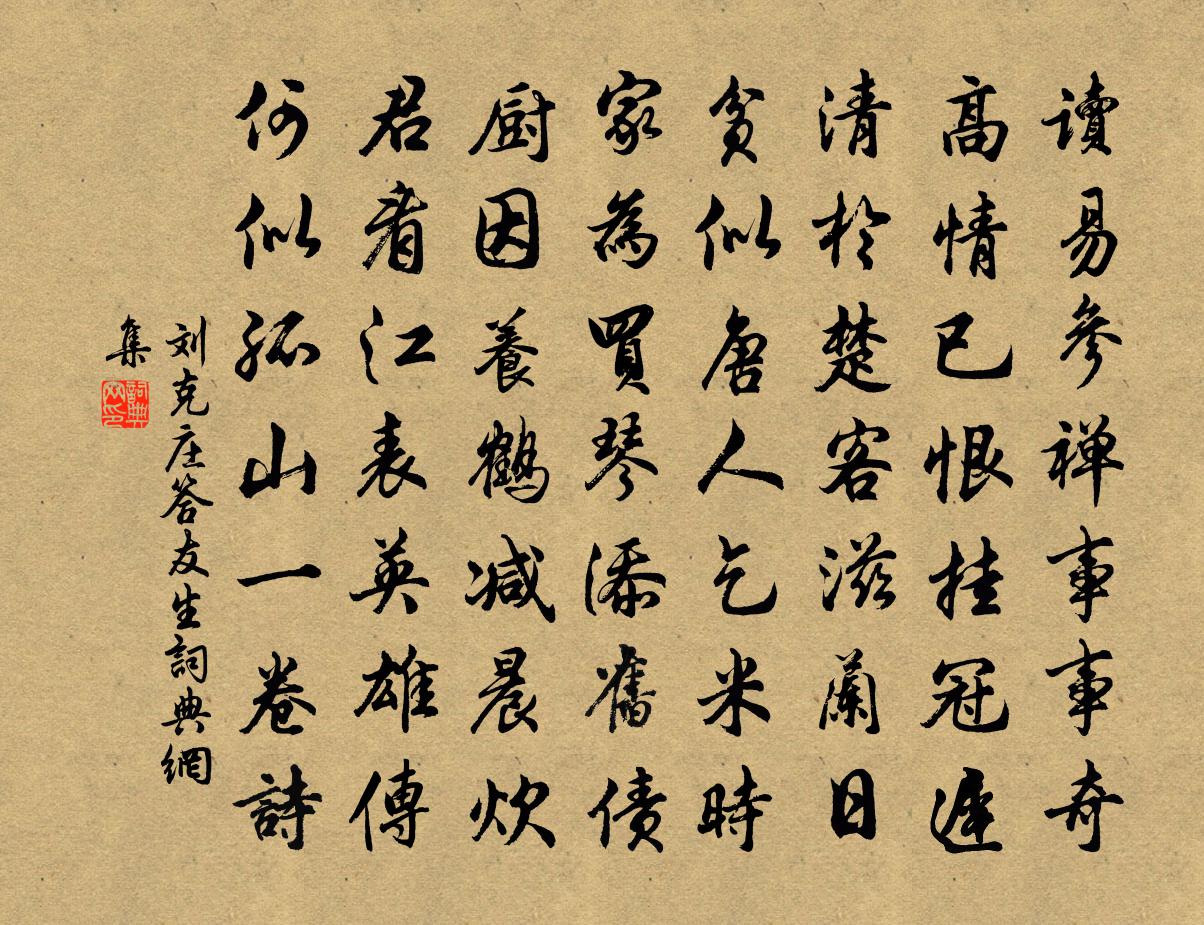 讀易參禅事事奇
高情已恨挂冠遲
清於楚客滋蘭日
貧似唐人乞米時
家為買琴添舊債
厨因養鶴减晨炊
君看江表英雄傳
何似孤山一卷詩
刘克庄答友生詞典網
集
詞典網印